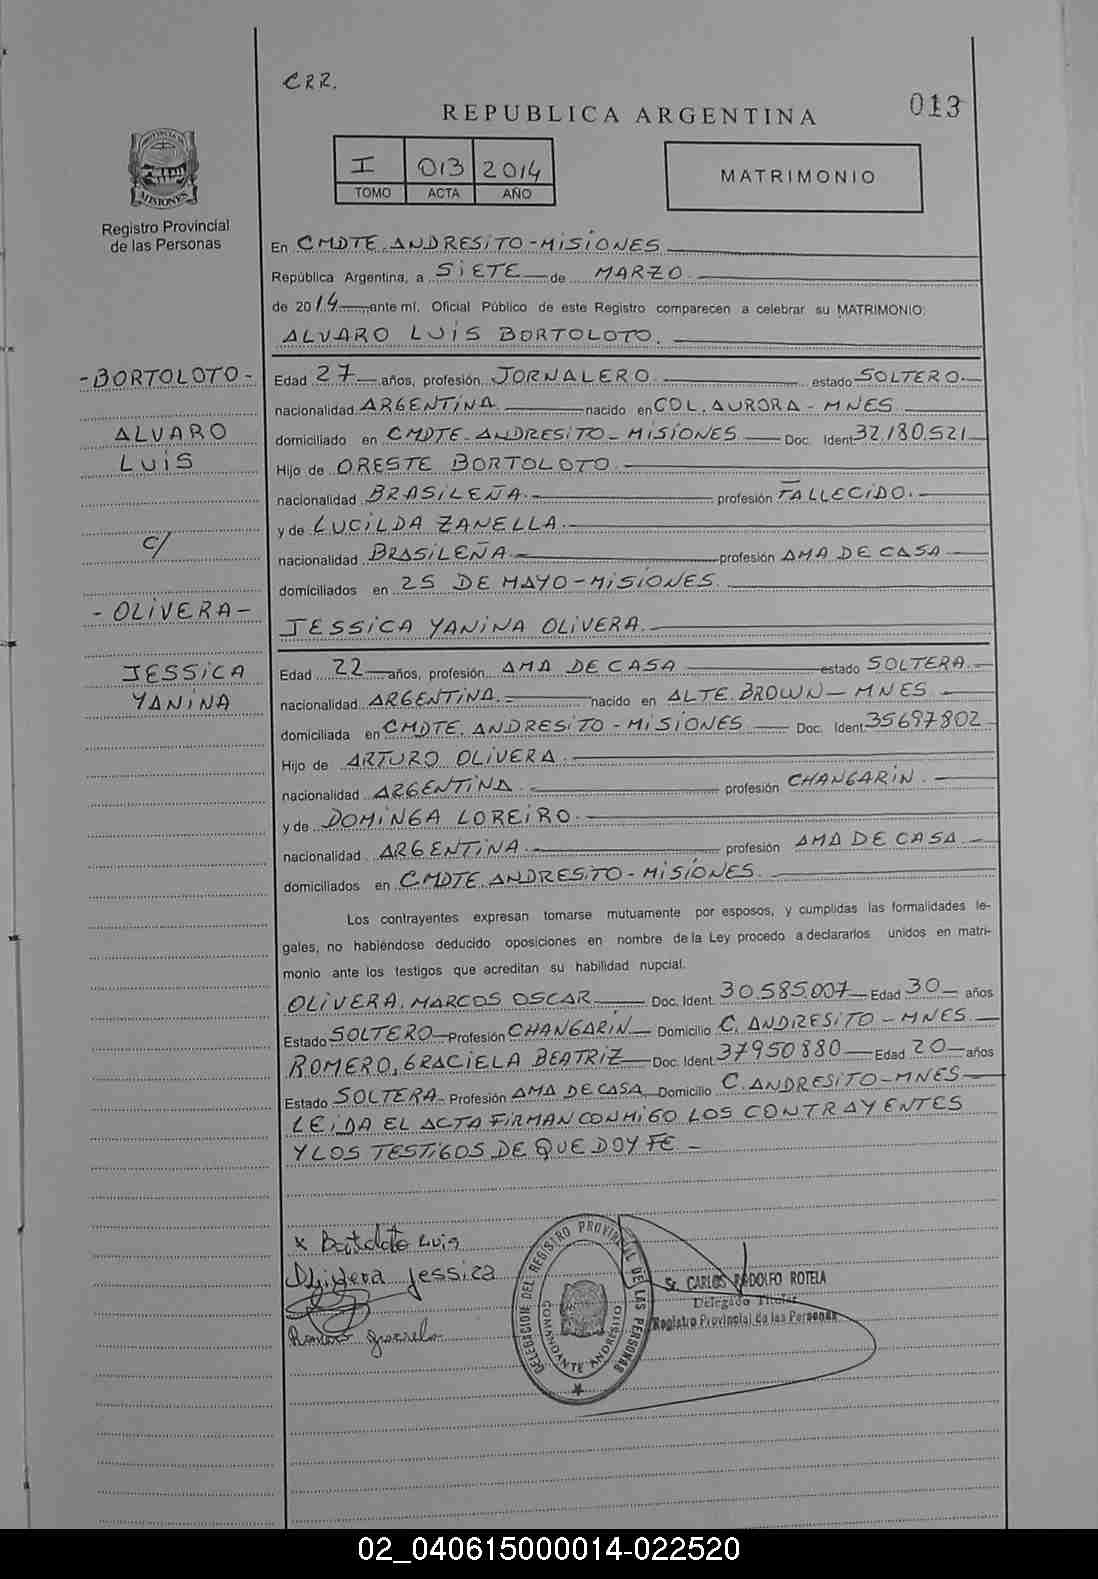 CRR.
013
REPUBLICA ARGENTINA
I 013 2014
TOMO ACTA AÑO
MATRIMONIO
PROVINCIA DE
MISIONES
Registro Provincial
de las Personas
En CMDTE. ANDRESITO - MISIONES
República Argentina, a SIETE de MARZO
de 2014 ante mí, Oficial Público de este Registro comparecen a celebrar su MATRIMONIO:
ALVARO LUIS BORTOLOTO.
- BORTOLOTO -
ALVARO
LUIS
c/
- OLIVERA -
JESSICA
YANINA
Edad 27 años, profesión JORNALERO estado SOLTERO
nacionalidad ARGENTINA nacido en COL. AURORA - MNES
domiciliado en CMDTE. ANDRESITO - MISIONES Doc. Ident. 32.180.521
Hijo de ORESTE BORTOLOTO
nacionalidad BRASILEÑA profesión FALLECIDO
y de LUCILDA ZANELLA
nacionalidad BRASILEÑA profesión AMA DE CASA
domiciliados en 25 DE MAYO - MISIONES
JESSICA YANINA OLIVERA
Edad 22 años, profesión AMA DE CASA estado SOLTERA
nacionalidad ARGENTINA nacido en ALTE. BROWN - MNES
domiciliada en CMDTE. ANDRESITO - MISIONES Doc. Ident. 35697802
Hijo de ARTURO OLIVERA
nacionalidad ARGENTINA profesión CHANGARIN
y de DOMINGA LOREIRO
nacionalidad ARGENTINA profesión AMA DE CASA
domiciliados en CMDTE. ANDRESITO - MISIONES
Los contrayentes expresan tomarse mutuamente por esposos, y cumplidas las formalidades le-
gales, no habiéndose deducido oposiciones en nombre de la Ley procedo a declararlos unidos en matri-
monio ante los testigos que acreditan su habilidad nupcial.
OLIVERA, MARCOS OSCAR Doc. Ident. 30.585.007 Edad 30 años
Estado SOLTERO Profesión CHANGARÍN Domicilio C. ANDRESITO - MNES
ROMERO, GRACIELA BEATRIZ Doc. Ident. 37950880 Edad 20 años
Estado SOLTERA Profesión AMA DE CASA Domicilio C. ANDRESITO - MNES
LEIDA EL ACTA FIRMAN CONMIGO LOS CONTRAYENTES
Y LOS TESTIGOS DE QUE DOY FE -
x Bortoloto Luis
Olivera Jessica
Romero Graciela
DELEGACION DEL REGISTRO PROVINCIAL DE LAS PERSONAS
COMANDANTE ANDRESITO
Sr. CARLOS RODOLFO ROTELA
Delegado Titular
Registro Provincial de las Personas
02_040615000014-022520